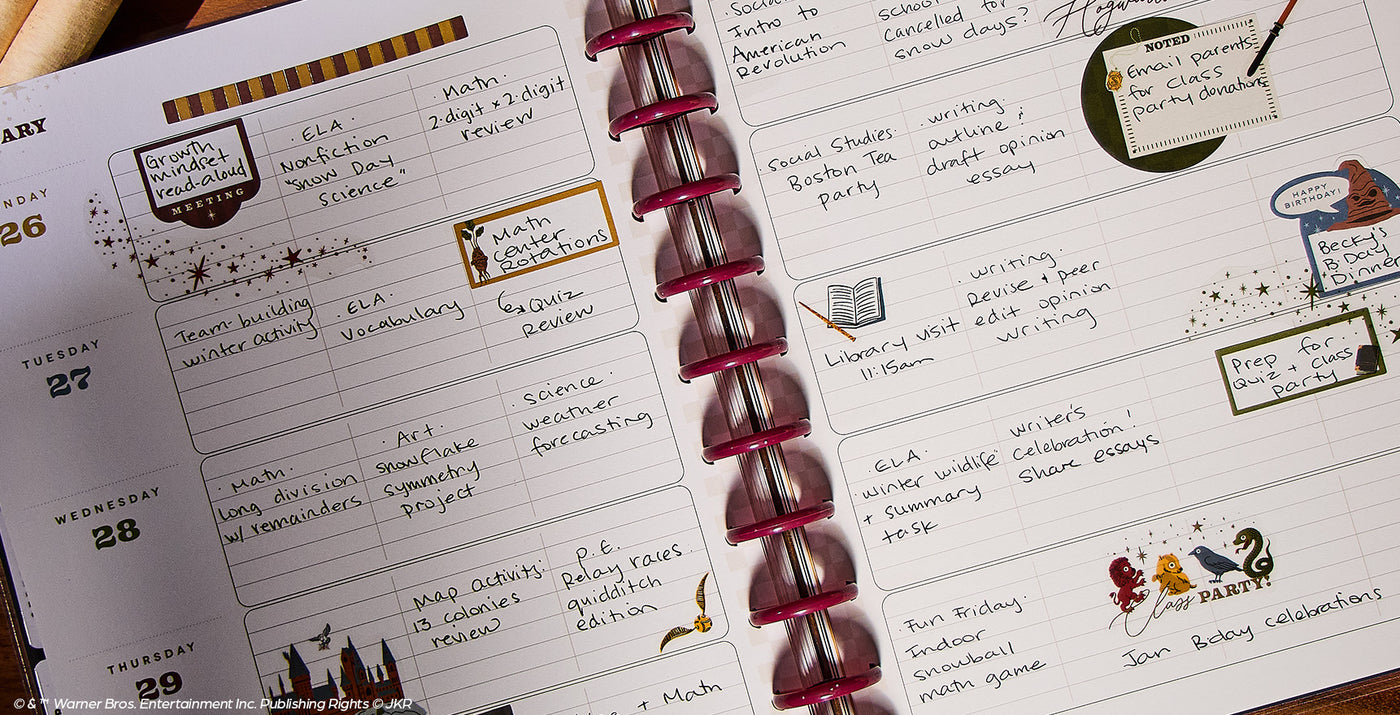 ARY
NDAY
26
Growth
mindset
read-aloud
MEETING
· ELA ·
Nonfiction
"Snow Day
Science"
· Math ·
2·digit × 2·digit
review
TUESDAY
27
Team-building
winter activity
· ELA ·
vocabulary
Math
center
Rotations
Quiz
Review
WEDNESDAY
28
· Math ·
long division
w/ remainders
· Art ·
snowflake
symmetry
project
· science ·
weather
forecasting
THURSDAY
29
Map activity:
13 colonies
review
P.E.
Relay races
quidditch
edition
+ Math
Intro to
American
Revolution
school
cancelled for
snow days?
Hogwarts
NOTED
Email parents
for class
party donations
Social Studies:
Boston Tea
party
· writing ·
outline +
draft opinion
essay
HAPPY
BIRTHDAY!
Becky's
B Day
Dinner
Library visit
11:15am
· writing ·
Revise + peer
edit opinion
writing
Prep for
Quiz + Class
party
· ELA ·
winter wildlife
+ summary
task
writer's
celebration!
share essays
Fun Friday·
Indoor
snowball
math game
Class PARTY!
Jan Bday celebrations
© & ™ Warner Bros. Entertainment Inc. Publishing Rights © JKR